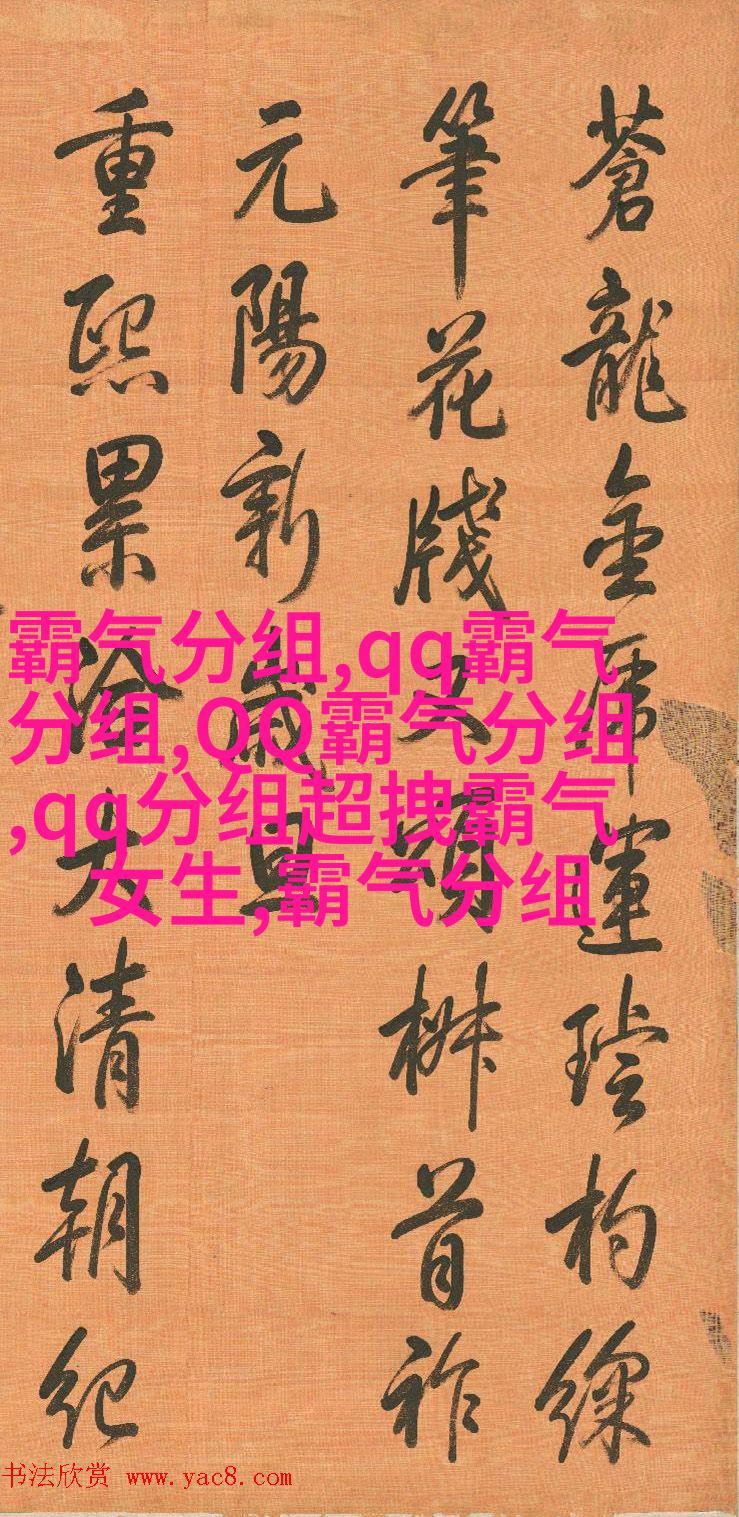 蒼龍金虎運杓
筆花牋頌椒首祚
元陽新歲旦
重熙累洽大清朝紀
霸气分组,qq霸气
分组,QQ霸气分组
,qq分组超拽霸气
女生,霸气分组
书法欣赏 www.yac8.com